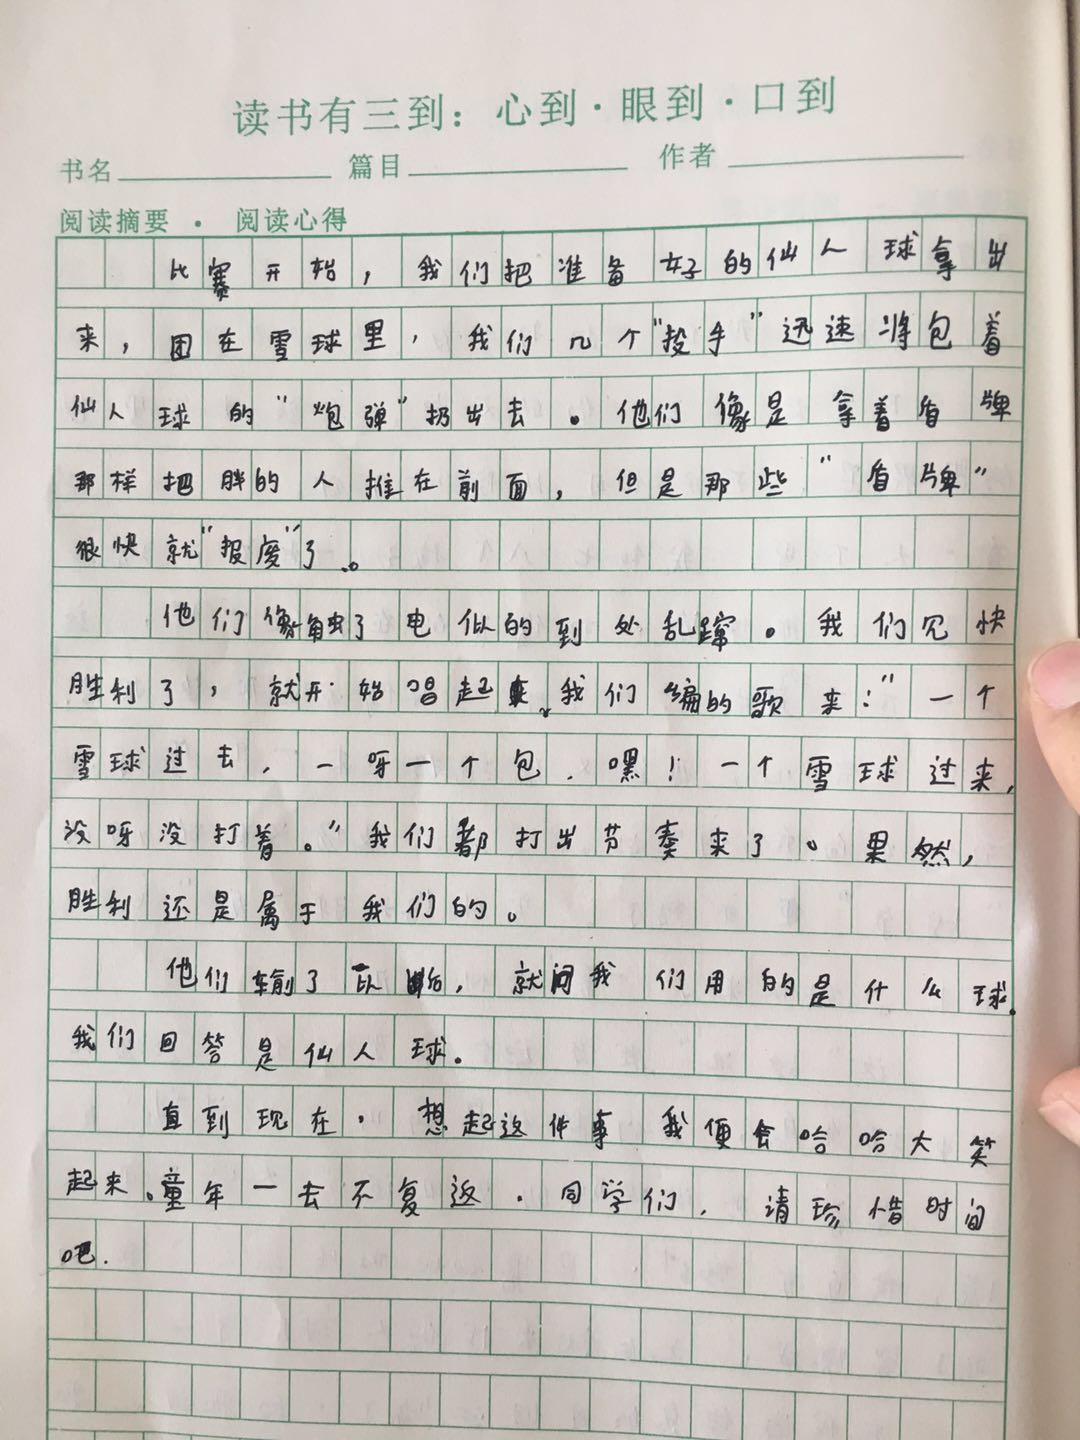 读书有三到：心到·眼到·口到
书名 篇目 作者
阅读摘要 · 阅读心得
比赛开始，我们把准备好的仙人球拿出
来，团在雪球里，我们几个“投手”迅速将包着
仙人球的“炮弹”扔出去。他们像是拿着盾牌
那样把胖的人推在前面，但是那些“盾牌”
很快就“报废”了。
他们像触了电似的到处乱蹿。我们见快
胜利了，就开始唱起来我们编的歌来：“一个
雪球过去，一呀一个包，嘿！一个雪球过来，
没呀没打着。”我们都打出节奏来了。果然，
胜利还是属于我们的。
他们输了以后，就问我们用的是什么球。
我们回答是仙人球。
直到现在，想起这件事我便会哈哈大笑
起来。童年一去不复返，同学们，请珍惜时间
吧.